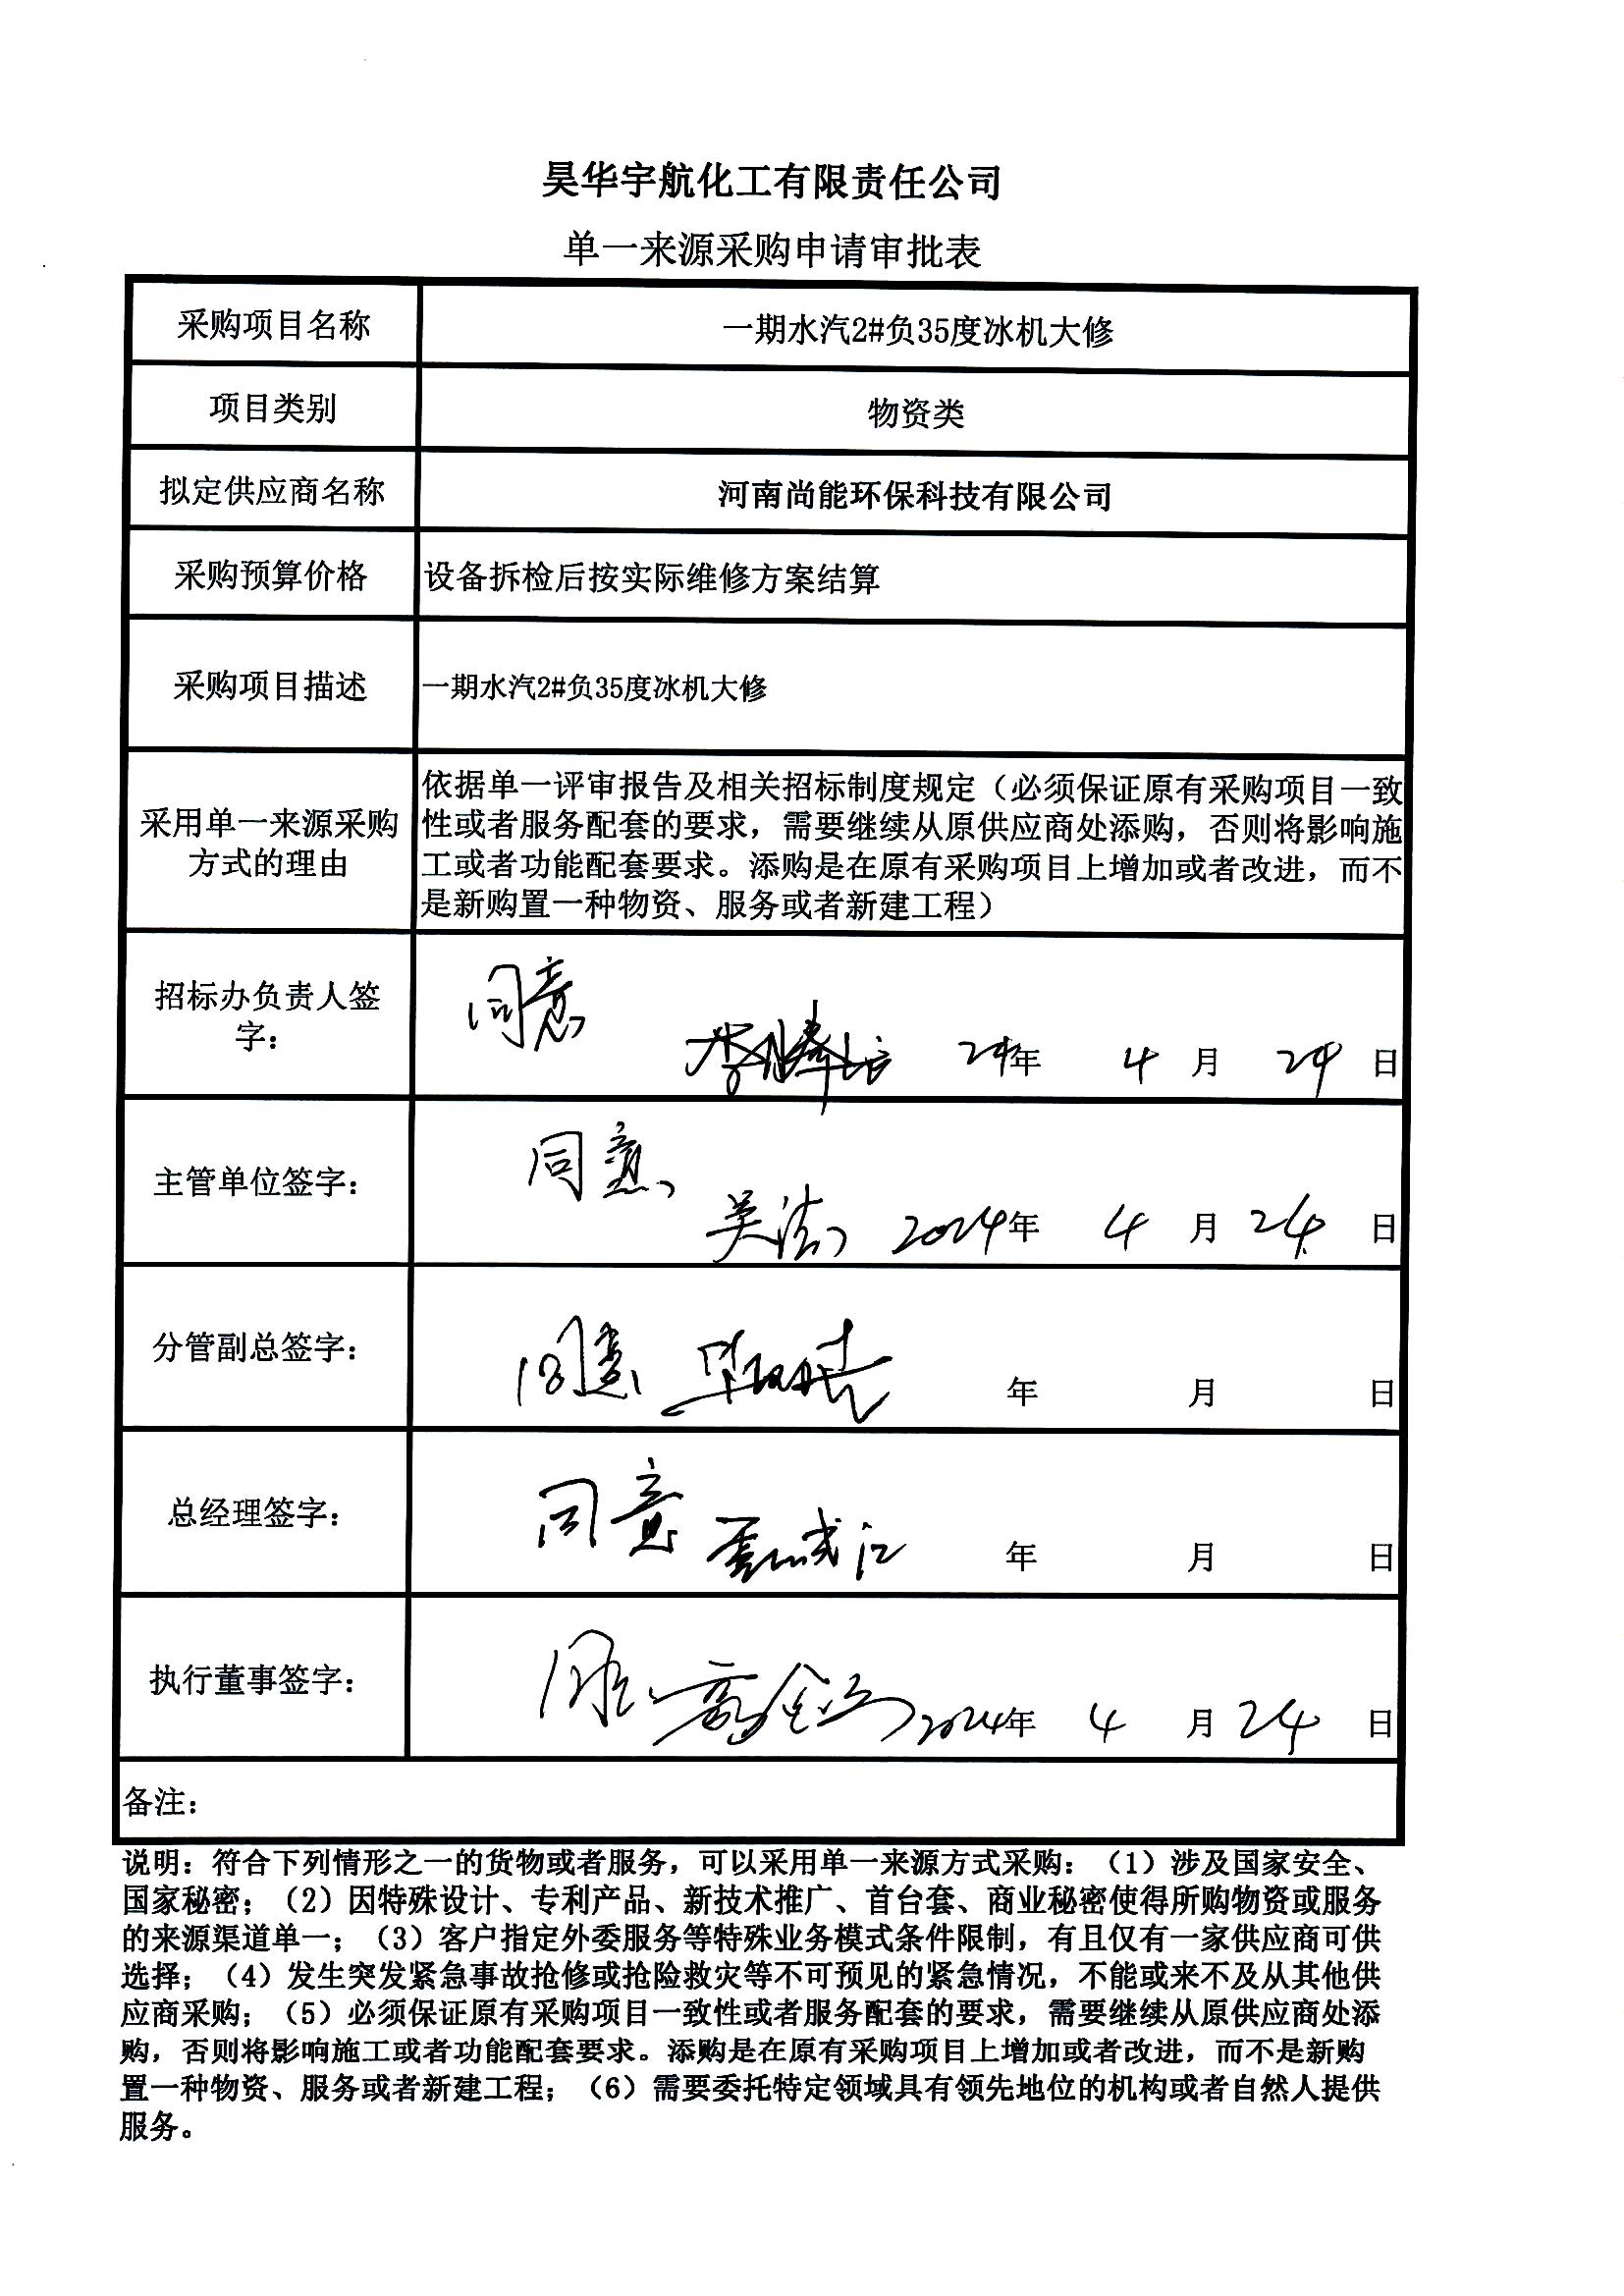 昊华宇航化工有限责任公司
单一来源采购申请审批表
采购项目名称
一期水汽2#负35度冰机大修
项目类别
物资类
拟定供应商名称
河南尚能环保科技有限公司
采购预算价格
设备拆检后按实际维修方案结算
采购项目描述
一期水汽2#负35度冰机大修
采用单一来源采购
方式的理由
依据单一评审报告及相关招标制度规定（必须保证原有采购项目一致
性或者服务配套的要求，需要继续从原供应商处添购，否则将影响施
工或者功能配套要求。添购是在原有采购项目上增加或者改进，而不
是新购置一种物资、服务或者新建工程）
招标办负责人签
字：
同意
24年 4 月 24 日
主管单位签字：
同意
2024年 4 月 24 日
分管副总签字：
同意
年 月 日
总经理签字：
同意
年 月 日
执行董事签字：
同意
2024年 4 月 24 日
备注：
说明：符合下列情形之一的货物或者服务，可以采用单一来源方式采购：（1）涉及国家安全、
国家秘密；（2）因特殊设计、专利产品、新技术推广、首台套、商业秘密使得所购物资或服务
的来源渠道单一；（3）客户指定外委服务等特殊业务模式条件限制，有且仅有一家供应商可供
选择；（4）发生突发紧急事故抢修或抢险救灾等不可预见的紧急情况，不能或来不及从其他供
应商采购；（5）必须保证原有采购项目一致性或者服务配套的要求，需要继续从原供应商处添
购，否则将影响施工或者功能配套要求。添购是在原有采购项目上增加或者改进，而不是新购
置一种物资、服务或者新建工程；（6）需要委托特定领域具有领先地位的机构或者自然人提供
服务。